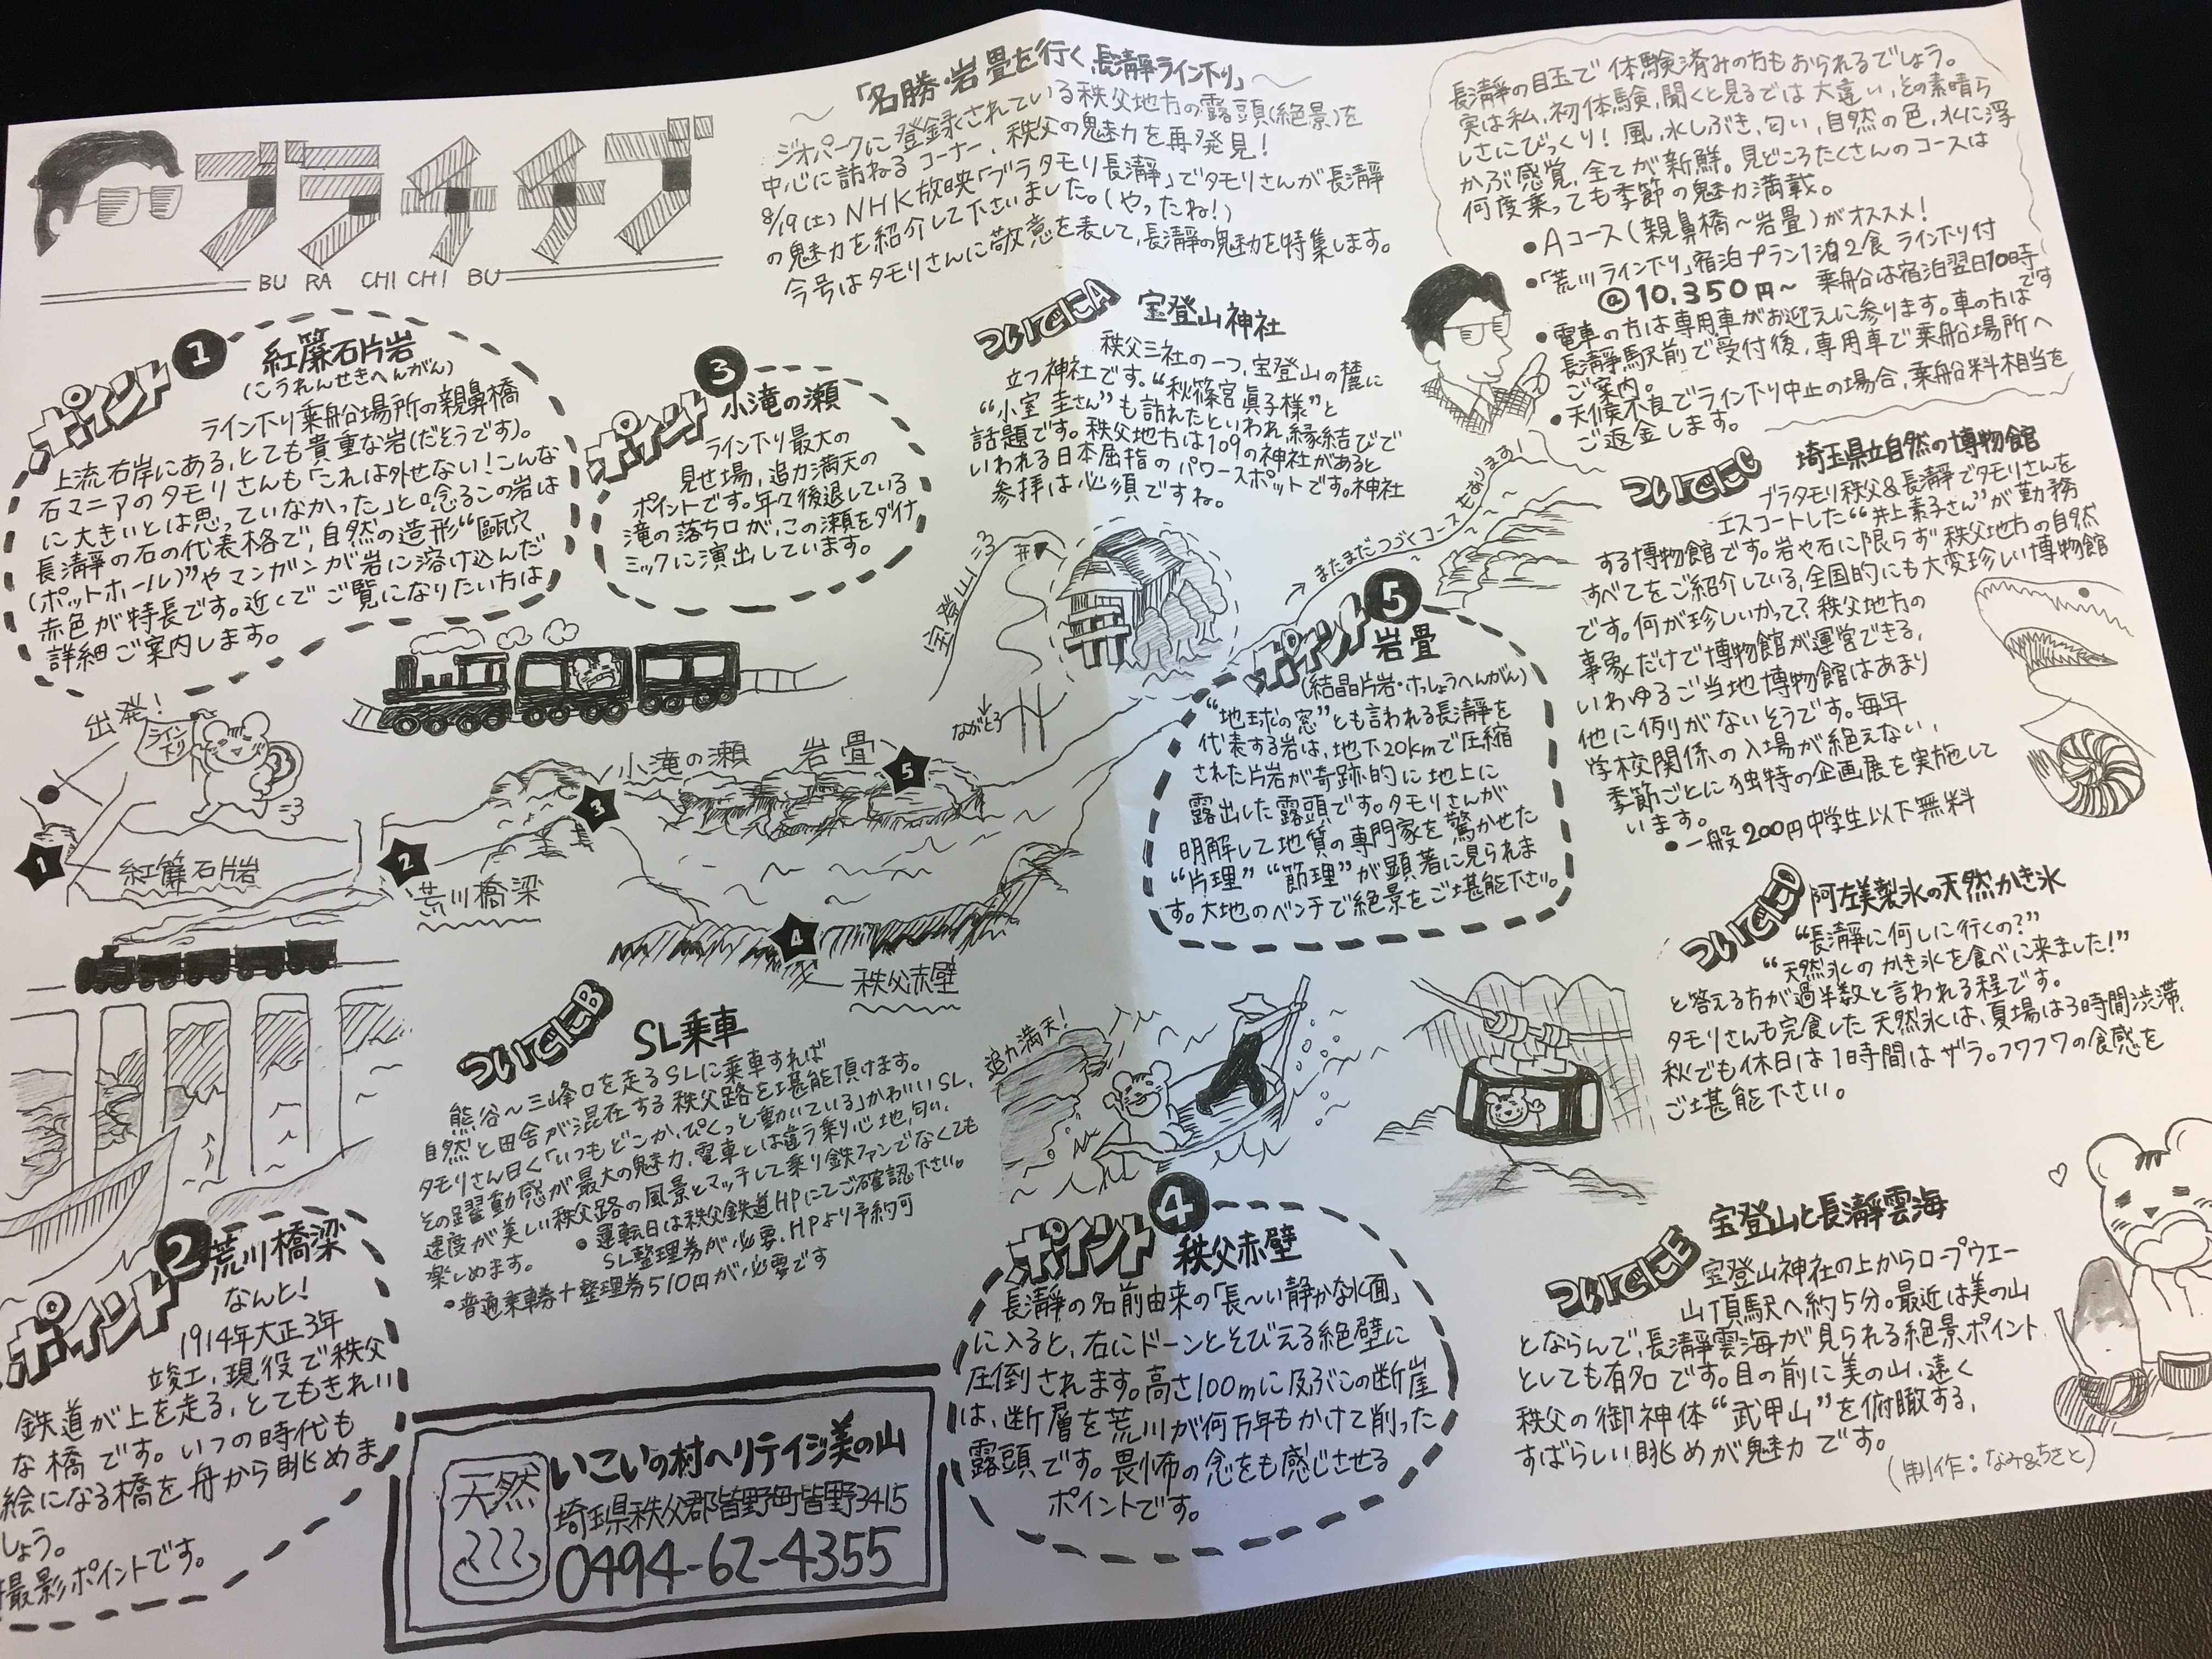 ブラチチブ
BU RA CHI CHI BU
～「名勝・岩畳を行く、長瀞ライン下り」～
ジオパークに登録されている秩父地方の露頭(絶景)を
中心に訪ねるコーナー、秩父の魅力を再発見!
8/19(土)NHK放映「ブラタモリ長瀞」でタモリさんが長瀞
の魅力を紹介して下さいました。(やったね!)
今号はタモリさんに敬意を表して、長瀞の魅力を特集します。
長瀞の目玉で体験済みの方もおられるでしょう。
実は私、初体験、聞くと見るでは大違い、その素晴ら
しさにびっくり!風、水しぶき、匂い、自然の色、水に浮
かぶ感覚、全てが新鮮。見どころたくさんのコースは
何度乗っても季節の魅力満載。
•Aコース(親鼻橋～岩畳)がオススメ!
•「荒川ライン下り」宿泊プラン1泊2食 ライン下り付
@10,350円～ 乗船は宿泊翌日10時です
•電車の方は専用車がお迎えに参ります。車の方は
長瀞駅前で受付後、専用車で乗船場所へ
ご案内。
•天候不良でライン下り中止の場合、乗船料相当を
ご返金します。
ポイント1
紅簾石片岩
(こうれんせきへんがん)
ライン下り乗船場所の親鼻橋
上流右岸にある、とても貴重な岩(だそうです)。
石マニアのタモリさんも「これは外せない!こんな
に大きいとは思っていなかった」と唸るこの岩は
長瀞の石の代表格で、自然の造形“甌穴
(ポットホール)”やマンガンが岩に溶け込んだ
赤色が特長です。近くでご覧になりたい方は
詳細ご案内します。
ポイント3
小滝の瀬
ライン下り最大の
見せ場、迫力満天の
ポイントです。年々後退している
滝の落ち口が、この瀬をダイナ
ミックに演出しています。
ついでにA 宝登山神社
秩父三社の一つ、宝登山の麓に
立つ神社です。“秋篠宮眞子様”と
“小室圭さん”も訪れたといわれ、縁結びで
話題です。秩父地方は109の神社があると
いわれる日本屈指のパワースポットです。神社
参拝は必須ですね。
まだまだつづくコースもあります!
ついでにC 埼玉県立自然の博物館
ブラタモリ秩父&長瀞でタモリさんを
エスコートした“井上素子さん”が勤務
する博物館です。岩や石に限らず秩父地方の自然
すべてをご紹介している、全国的にも大変珍しい博物館
です。何が珍しいかって?秩父地方の
事象だけで博物館が運営できる、
いわゆるご当地博物館はあまり
他に例がないそうです。毎年
学校関係の入場が絶えない、
季節ごとに独特の企画展を実施して
います。
•一般200円中学生以下無料
出発!
ライン下り
宝登山
ながとろ
小滝の瀬
岩畳
1
2
3
4
5
紅簾石片岩
荒川橋梁
秩父赤壁
ポイント5
岩畳
(結晶片岩・けっしょうへんがん)
“地球の窓”とも言われる長瀞を
代表する岩は、地下20kmで圧縮
された片岩が奇跡的に地上に
露出した露頭です。タモリさんが
明解して地質の専門家を驚かせた
“片理”“節理”が顕著に見られま
す。大地のベンチで絶景をご堪能下さい。
ついでにD 阿左美製氷の天然かき氷
“長瀞に何しに行くの?”
“天然氷のかき氷を食べに来ました!”
と答える方が過半数と言われる程です。
タモリさんも完食した天然氷は、夏場は3時間渋滞、
秋でも休日は1時間はザラ。フワフワの食感を
ご堪能下さい。
ついでにB SL乗車
熊谷～三峰口を走るSLに乗車すれば
自然と田舎が混在する秩父路を堪能頂けます。
タモリさん曰く「いつもどこか、ぴくっと動いている」かわいいSL、
その躍動感が最大の魅力、電車とは違う乗り心地、匂い、
速度が美しい秩父路の風景とマッチして乗り鉄ファンでなくても
楽しめます。
•運転日は秩父鉄道HPにてご確認下さい。
SL整理券が必要、HPより予約可
•普通乗車券+整理券510円が必要です
迫力満天!
ポイント2
荒川橋梁
なんと!
1914年大正3年
竣工、現役で秩父
鉄道が上を走る、とてもきれい
な橋です。いつの時代も
絵になる橋を舟から眺めま
しょう。
撮影ポイントです。
ポイント4
秩父赤壁
長瀞の名前由来の「長～い静かな水面」
に入ると、右にドーンとそびえる絶壁に
圧倒されます。高さ100mに及ぶこの断崖
は、断層を荒川が何万年もかけて削った
露頭です。畏怖の念をも感じさせる
ポイントです。
ついでにE 宝登山と長瀞雲海
宝登山神社の上からロープウェー
山頂駅へ約5分。最近は美の山
とならんで、長瀞雲海が見られる絶景ポイント
としても有名です。目の前に美の山、遠く
秩父の御神体“武甲山”を俯瞰する、
すばらしい眺めが魅力です。
(制作:なみ&ちさと)
天然
いこいの村ヘリテイジ美の山
埼玉県秩父郡皆野町皆野3415
0494-62-4355